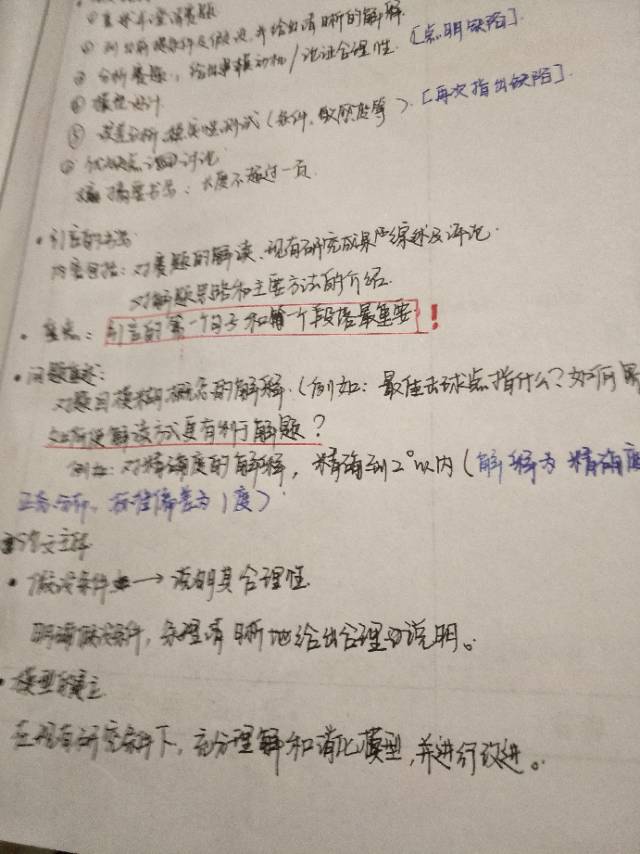 ① 重述和澄清赛题
② 列出前提条件及假设，并给出清晰的解释.
③ 分析赛题，给出建模动机/论证合理性. [点明缺陷].
④ 模型设计
⑤ 误差分析、稳定性测试(条件、敏感度等). [再次指出缺陷].
⑥ 优缺点 讨论
摘要书写：长度不超过一页.
• 引言的书写
内容包括：对赛题的解读、现有研究成果的综述及评论.
对解题思路和主要方法的介绍.
• 重点：引言的第一个句子和第一个段落最重要！
• 问题重述：
对题目模糊概念的解释.(例如：最佳击球点指什么？如何
如何使解读方式更有利于解题？
例如：对精确度的解释，精确到2°以内(解释为 精确度
正态分布，标准偏差为1度)
论文主体
• 假设条件 → 说明其合理性
明确假设条件，条理清晰地给出合理的说明。
• 模型的建立
在现有研究条件下，充分理解和消化模型，并进行改进。